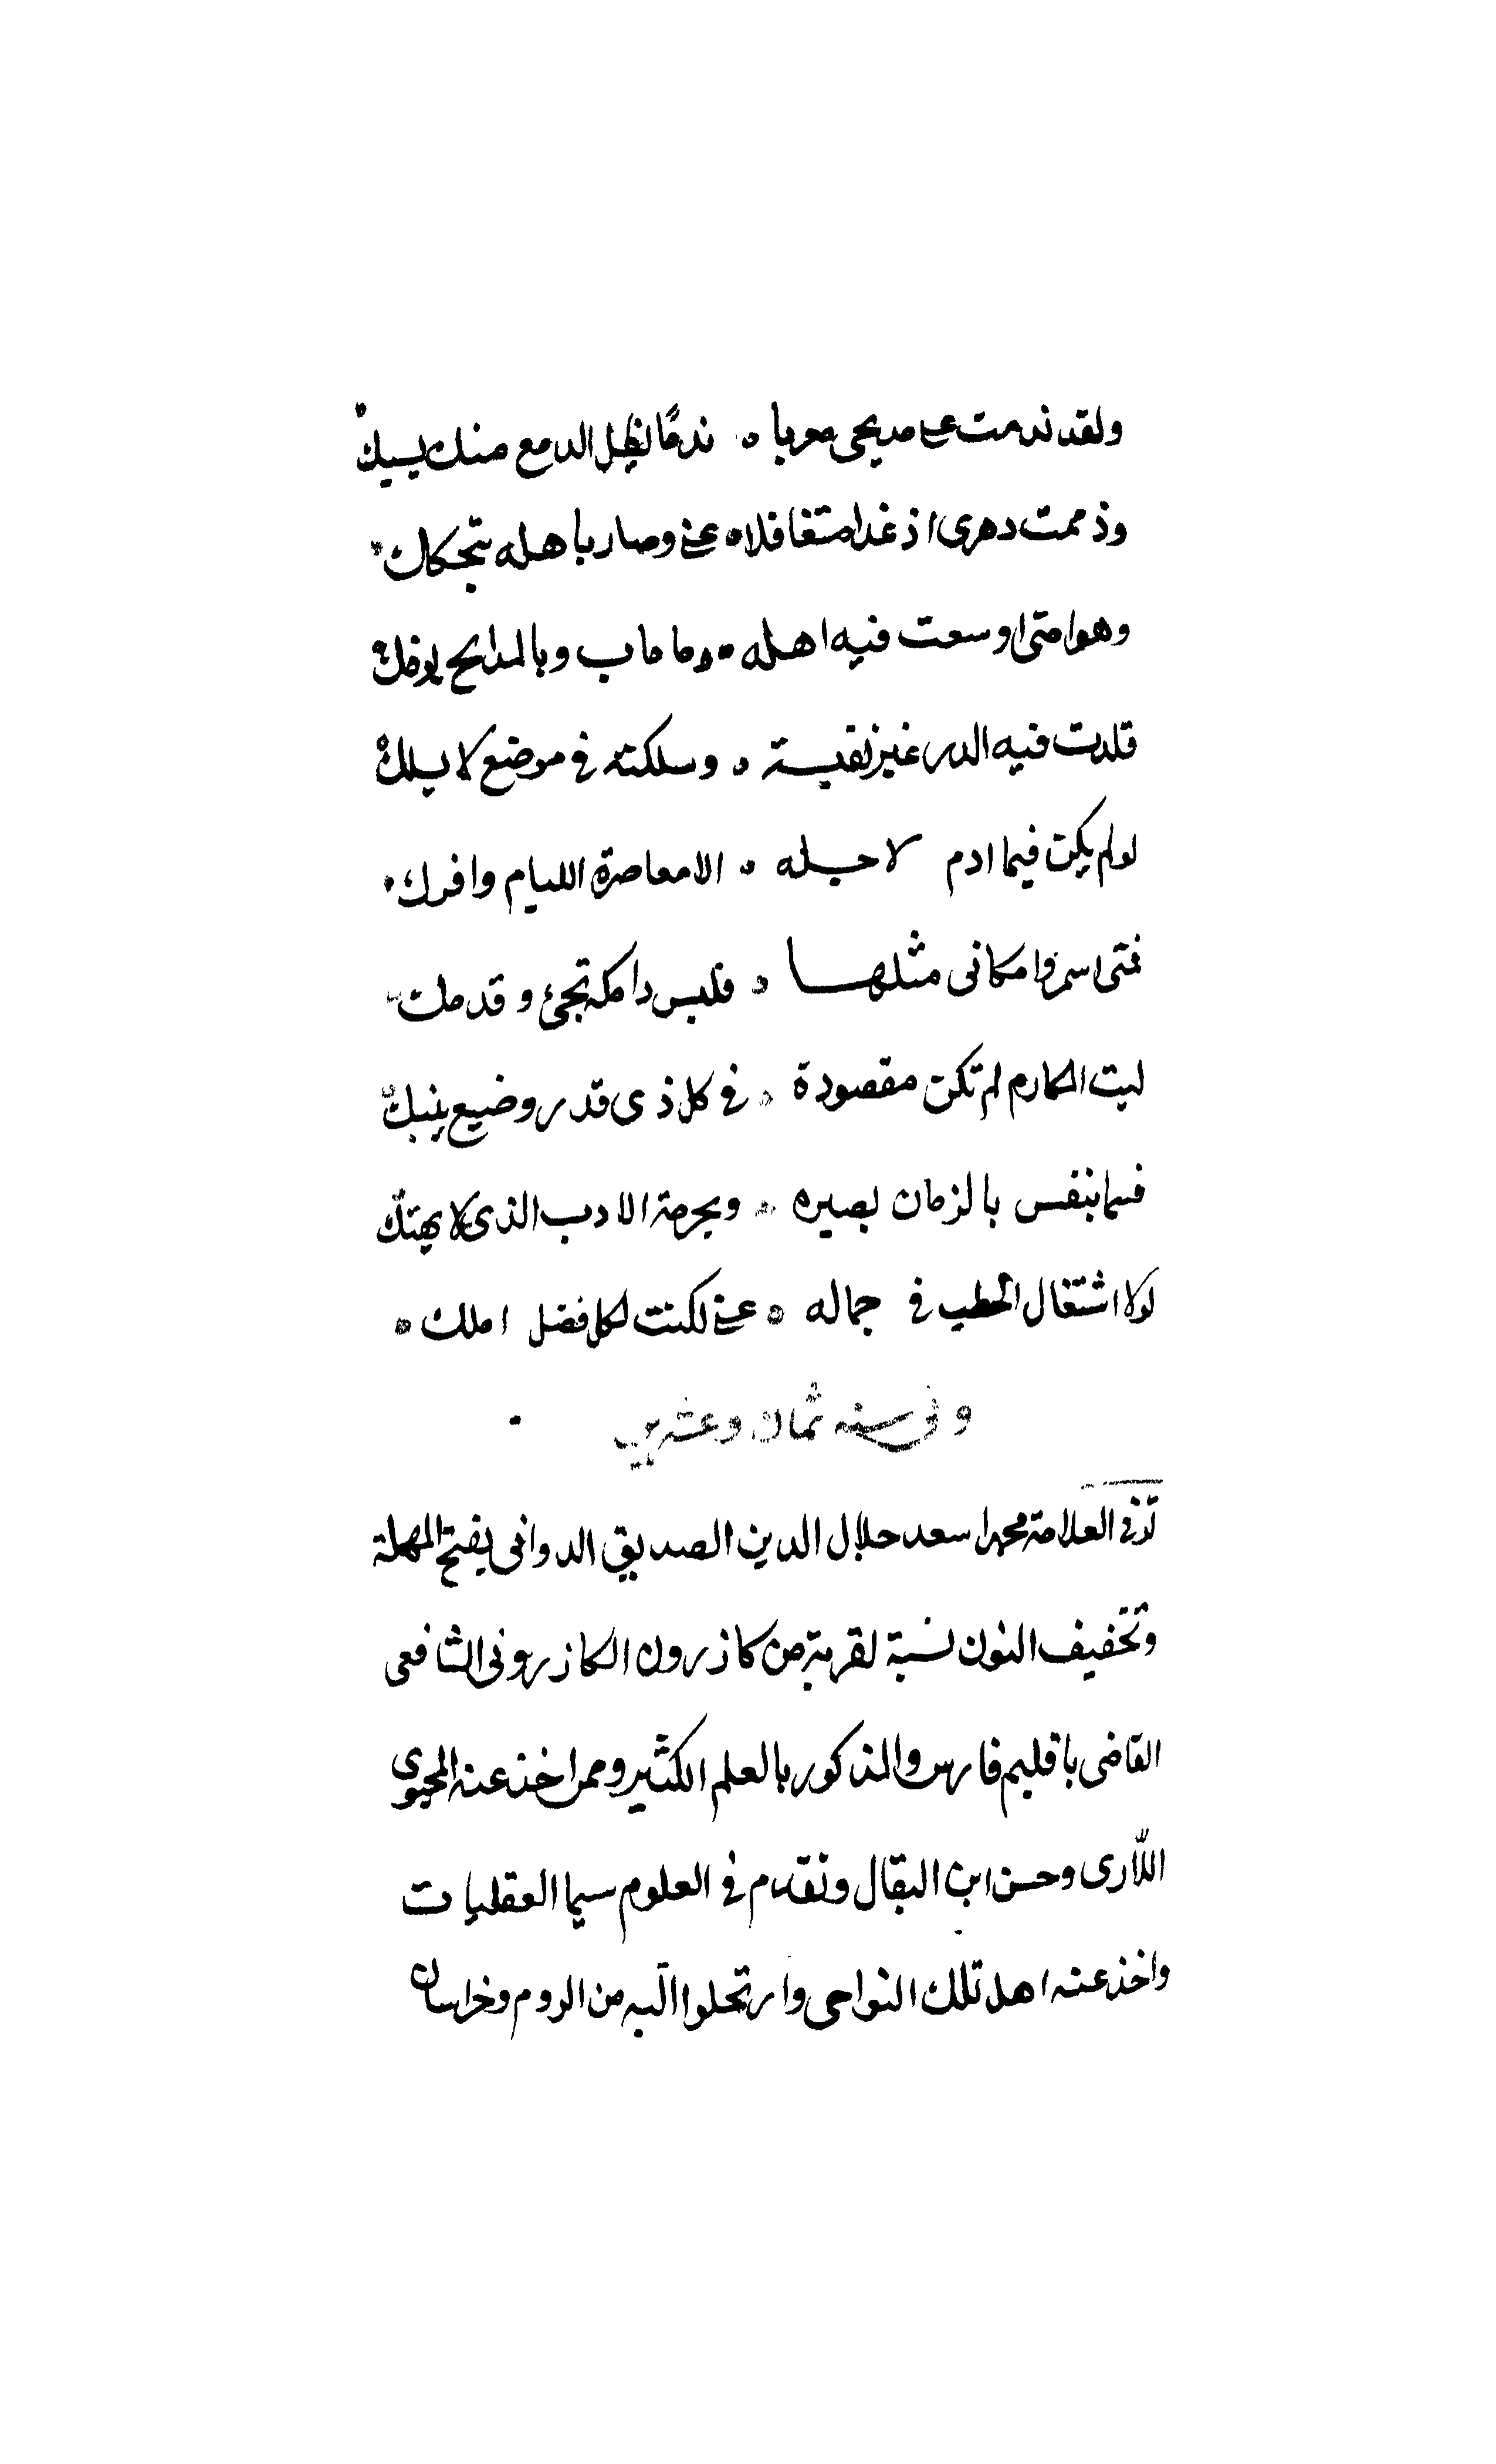 ولقد ندمت على مديحى معربا ه ندمًا يظل الدمع منك يسيك
وذممت دهرى اذ غدا متغافلا ه عني وصار باهله يتحكك
وهوا متى اوسعت فيه اهله ه وبالمدايح
قلدت فيه الدر غير نفيسة ه وسلكته في موضع لا يسلك
لو لم يكن فيما ادم لاجله ه الا معاصرة الليام وافرك
فمتى امكانى مثلها ه تجئ وقد
ليت المكارم لم تكن مقصودة ه في كل ذى قدر وضيع ينبك
قسما بنفس بالزمان بصيره ه وبحرمة الادب الذى لا يهتك
لولا اشتغال الخطب في جماله ه عني لكنت لكل فضل املك ه
وفي سنه ثمان وعشرين
توفى العلامة محمد اسعد جلال الدين الصديقى الدوانى بفتح المهملة
وتخفيف النون نسبة لقرية من كازرون الكازرونى الشافعى
القاضى باقليم فارس والمذكور بالعلم الكثير وممن اخذ عنه المحيوى
اللارى وحسن ابن البقال وتقدم في العلوم سيما العقليات
واخذ عنه اهل تلك النواحى وارتحلوا اليه من الروم وخراسان